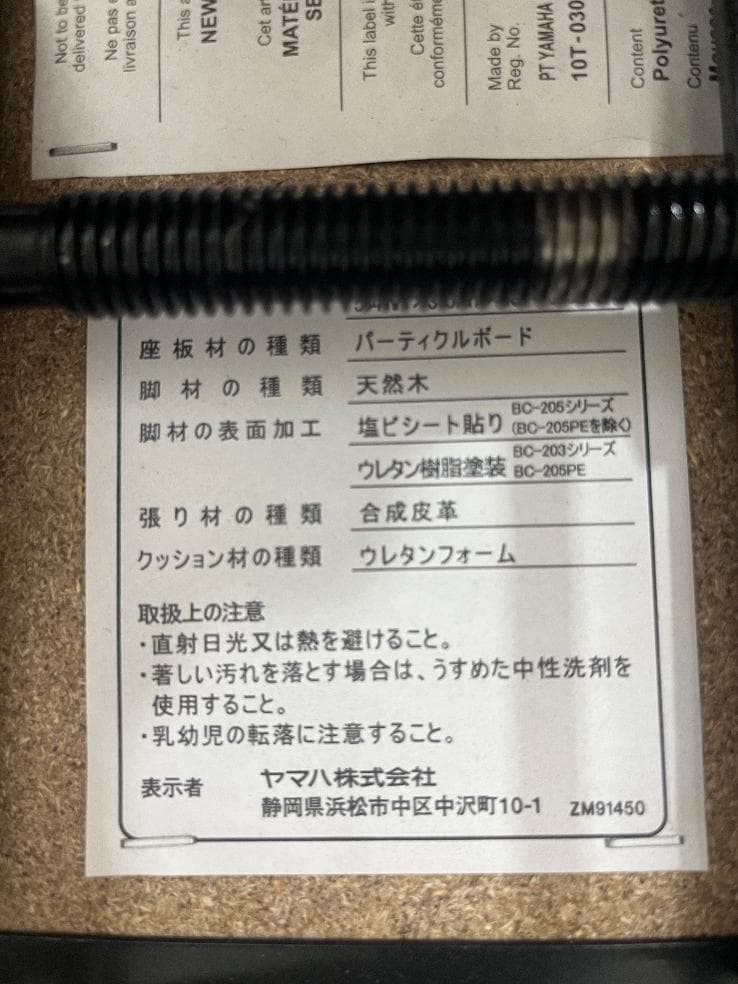 Not to be
delivered
Ne pas
livraison
This
NEW
Cet
MATÉ
This label
with
Cette
Made by
Reg. No.
PT YAMAHA
10T-030
Content
Polyuret
Contenu
座板材の種類 パーティクルボード
脚材の種類 天然木
脚材の表面加工 塩ビシート貼り BC-205シリーズ
(BC-205PEを除く)
ウレタン樹脂塗装 BC-203シリーズ
BC-205PE
張り材の種類 合成皮革
クッション材の種類 ウレタンフォーム
取扱上の注意
・直射日光又は熱を避けること。
・著しい汚れを落とす場合は、うすめた中性洗剤を
使用すること。
・乳幼児の転落に注意すること。
表示者 ヤマハ株式会社
静岡県浜松市中区中沢町10-1 ZM91450